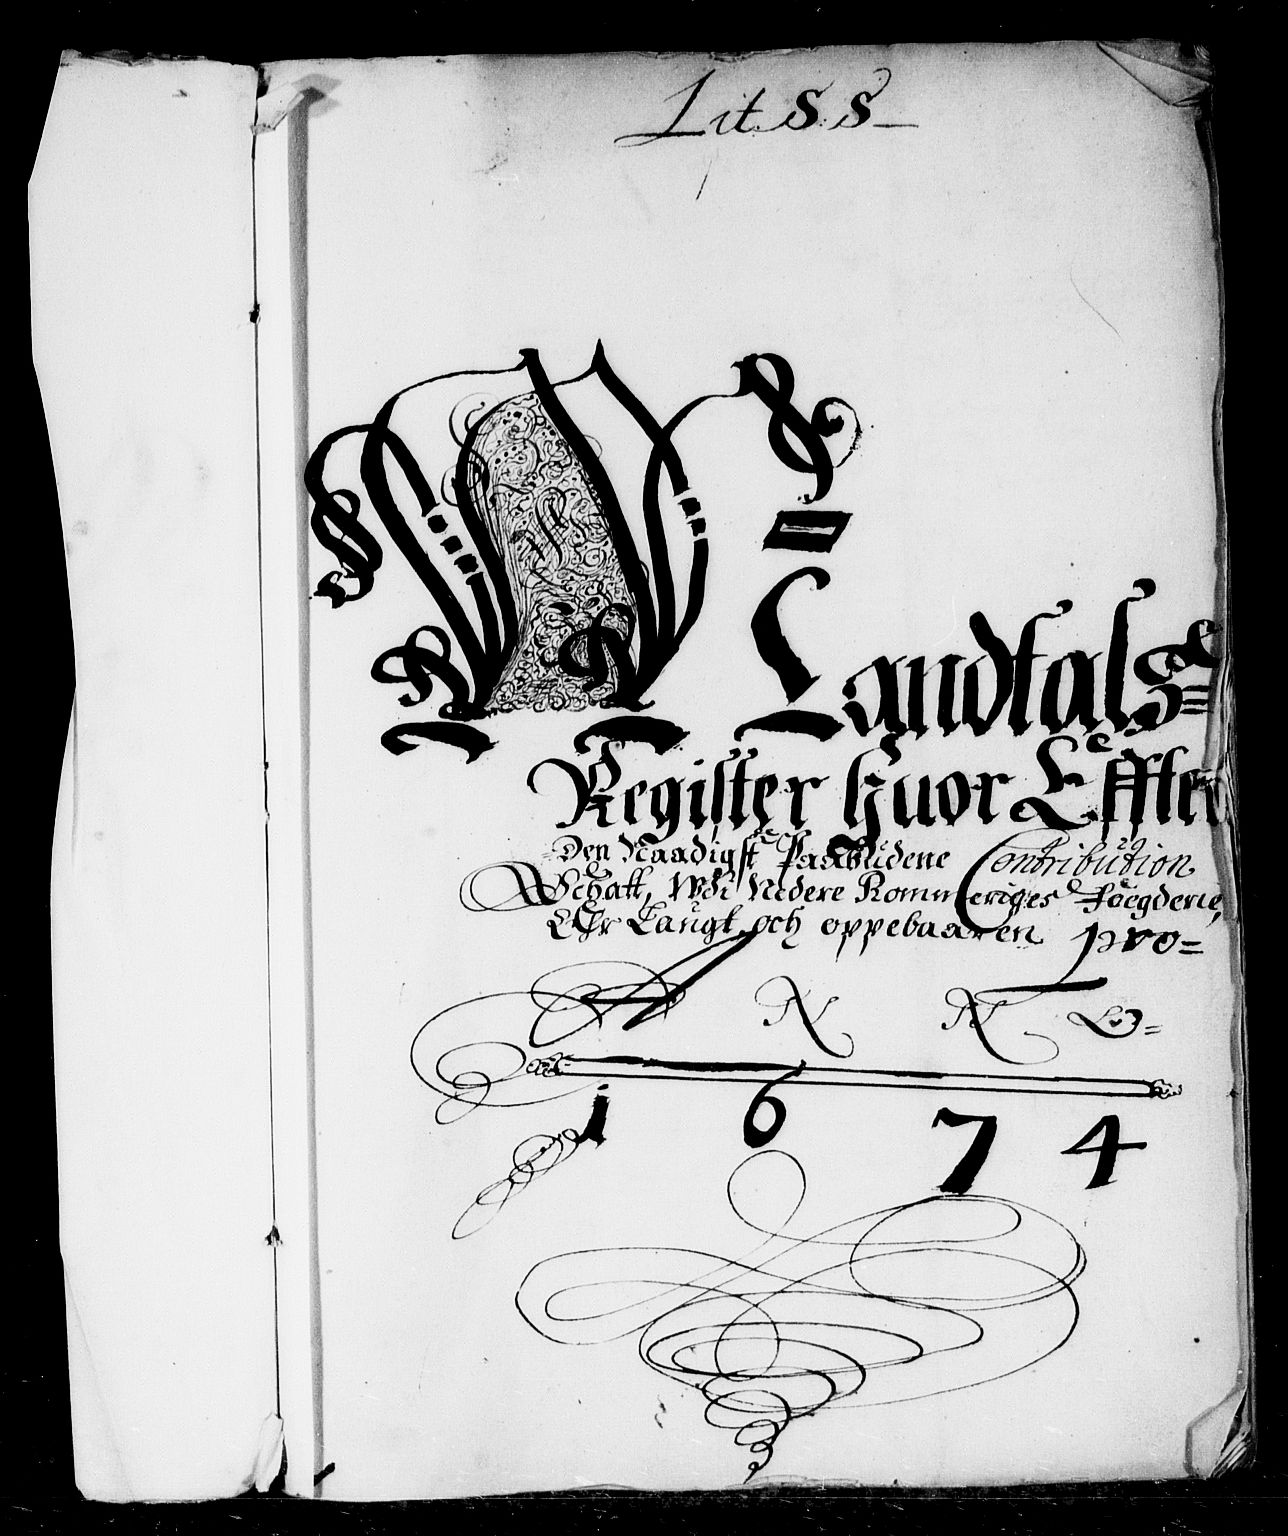 Lit S S
Mandtals=
Register Huor Effter
Den Naadigst Paabudene Contribution
Schatt, Udi Nedere Rommeriges Foegderie,
Ehr Langt och oppebaaren pro=
A N N O=
1674